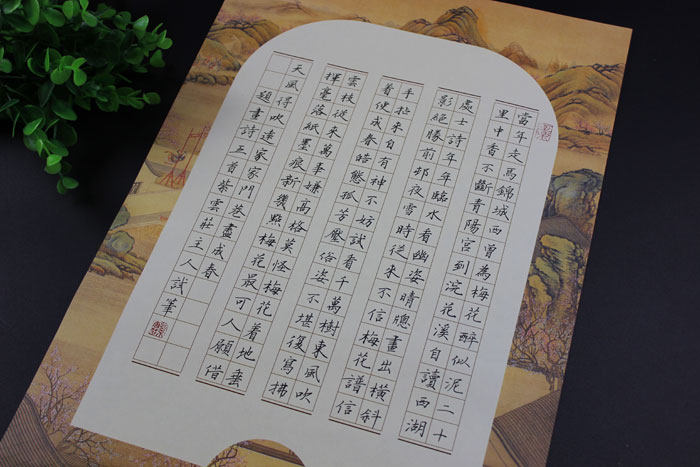 當年走馬錦城西曾為梅花醉似泥二十
里中香不斷青陽宮到浣花溪自讀西湖
處士詩年年臨水看幽姿晴牕畫出橫斜
影絕勝前邨夜雪時從來不信梅花譜信
手拈來自有神不妨試看千萬樹東風吹
着便成春皓態孤芳壓俗姿不堪復寫拂
雲枝從來萬事嫌高格莫怪梅花着地垂
揮毫落紙墨痕新幾點梅花最可人願借
天風得吹遠家家門巷盡成春
題畫詩五首紫雲莊主人試筆